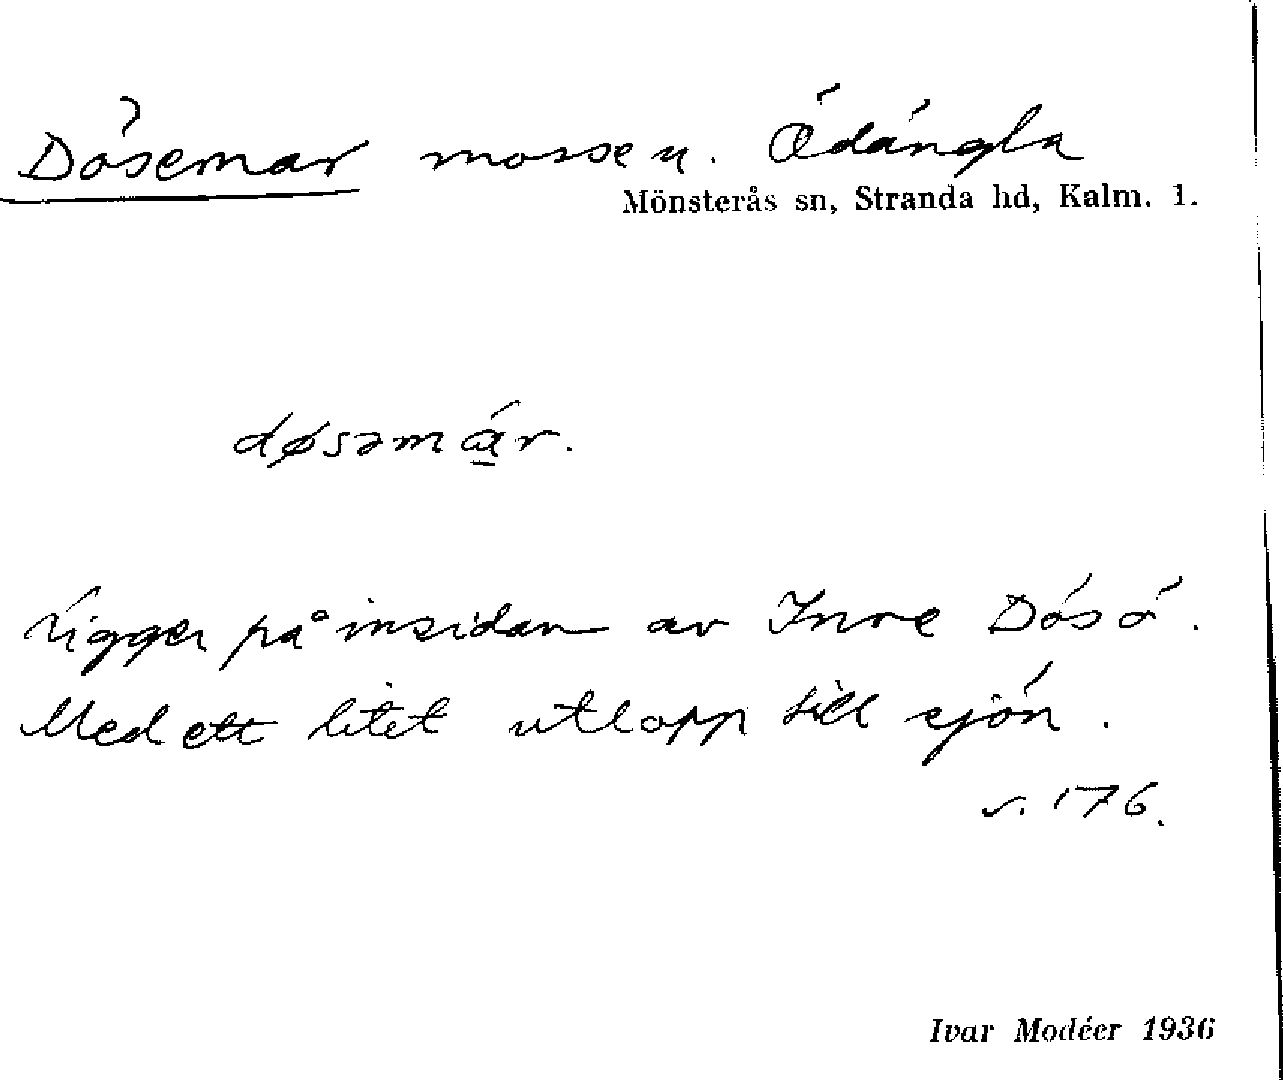 Dösemar mosse u. Ödängla
Mönsterås sn, Stranda hd, Kalm. l.
døsəmár.
Ligger på insidan av Inre Dösö.
Med ett litet utlopp till sjön.
s. 176.
Ivar Modéer 1936